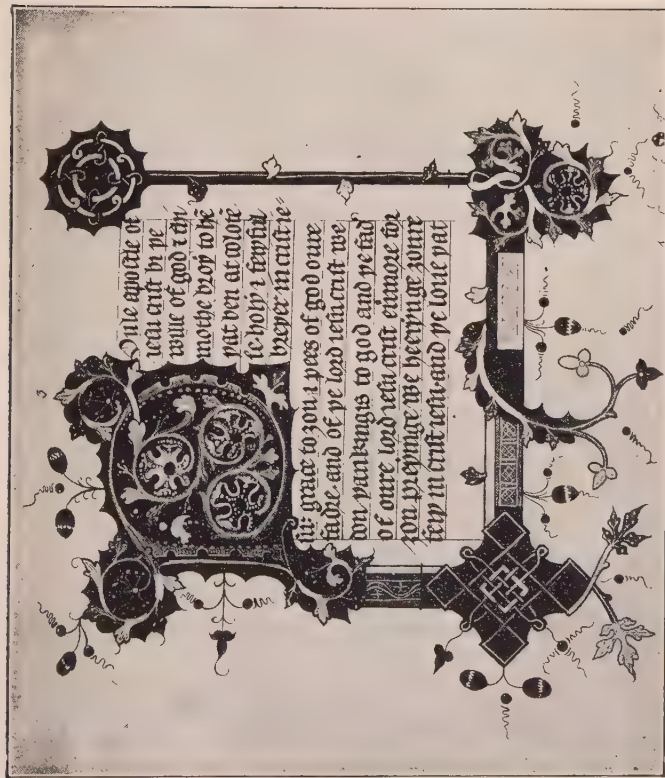 3
POule apostle of
iesu crist bi þe
wille of god ⁊ thi/
mothe broþ to hē
þat ben at colose
se holy ⁊ feyþful
breþer in crist ie=
su grace to ȝou ⁊ pees of god oure
fadre and of þe lord iesu crist we
don þankingis to god and þe fad'
of oure lord iesu crist euermore for
ȝou preyinge we heeringe ȝoure
feyþ in crist iesu and þe loue þat